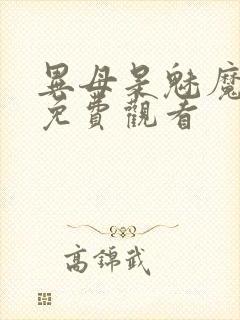 異母呆魅魔
免費觀看
高錦武